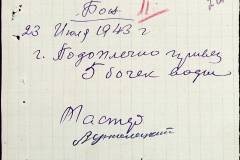 Бон
11.
23 Июля 1943 г
г. Подоплечно привез
5 бочек воды
Мастер